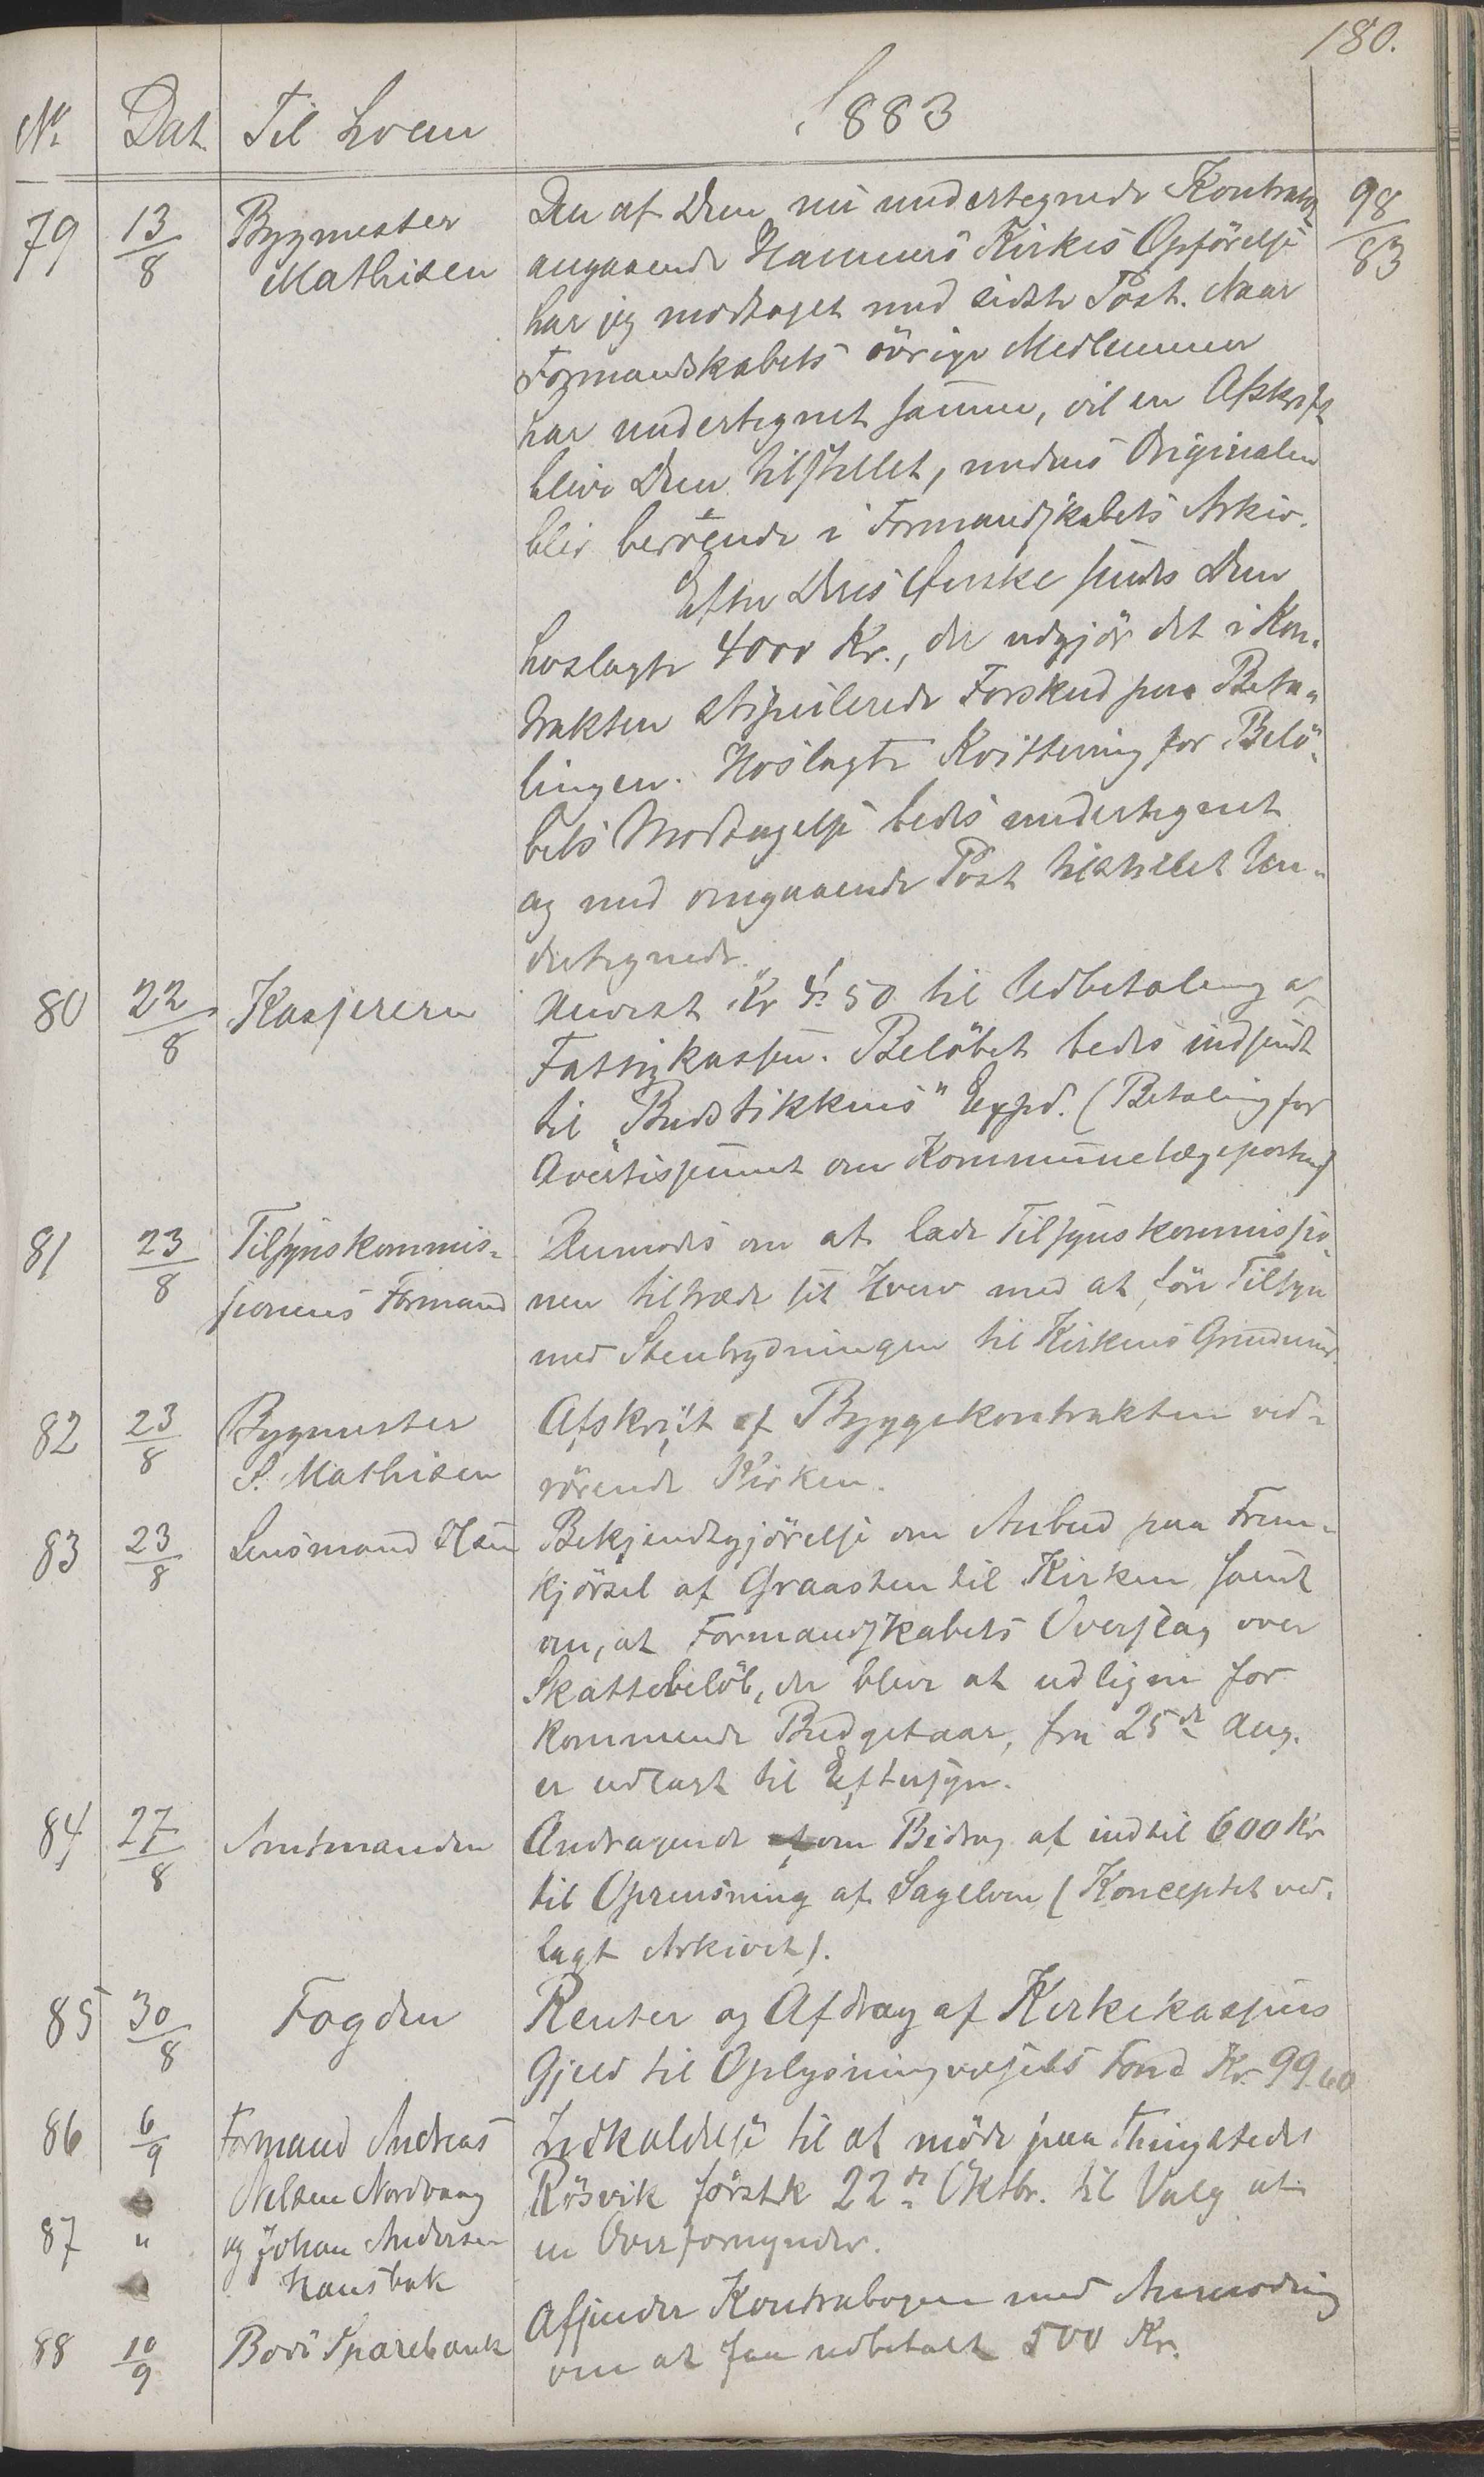 180.
No. Dat. Til hvem 1883
79 13/8 Bygmester Mathisen
Den af Dem nu undertegnede Kontrakt 98/83
angaaende Hammers Kirkes Opförelse
har jeg modtaget med sidste Post. Naar
Formandskabets övrige Medlemmer
har undertegnet samme, vil en Afskrift
blive Dem tilstillet, medens Originalen
blir beroende i Formandskabets Arkiv.
Efter Deres Önske sendes Dem
hoslagte 4000 Kr., der udgjör det i Kon-
trakten stipulerede Forskud paa Beta-
lingen. Hoslagte Kvittering for Belö-
bets Modtagelse bedes undertegnet
og med omgaaende Post tilstillet Un-
dertegnede.
80 22/8 Kassereren
Anvist Kr 4.50 til Udbetaling af
Fattigkassen. Belöbet bedes indsendt
til "Budstikkens" Exped. (Betaling for
Avertissement om Kommunelægeposten)
81 23/8 Tilsynskommis-
sionens Formand
Anmodes om at lade Tilsynskommissio-
nen tiltræde sit Hverv med at före Tilsyn
med Stenbrydningen til Kirkens Grundmur.
82 23/8 Bygmester
S. Mathisen
Afskrift af Byggekontrakten ved-
rörende Kirken.
83 23/8 Lensmand
Bekjendtgjörelse om Anbud paa Frem-
kjörsel af Graasten til Kirken samt
om, at Formandskabets Overslag over
Skattebelöb, der blive at udligne for
kommende Budgetaar, fra 25de Aug.
er udlagt til Eftersyn.
84 27/8 Amtmanden
Andragende om Bidrag af indtil 600 Kr
til Oprensning af Sagelven (Konceptet ved-
lagt Arkivet).
85 30/8 Fogden
Renter og Afdrag af Kirkekassens
Gjeld til Oplysningvæsets Fond Kr. 99.60
86 6/9 Formand Andreas
Nilsen Nordvaag
87 " og Johan Andersen
Hansbak
Indkaldelse til at möde paa Thingstedet
Rösvik förstk 22de Oktbr. til Valg af
en Overformynder.
88 10/9 Bodö Sparebank
Afsender Kontrabogen med Anmodning
om at faa udbetalt 500 Kr.